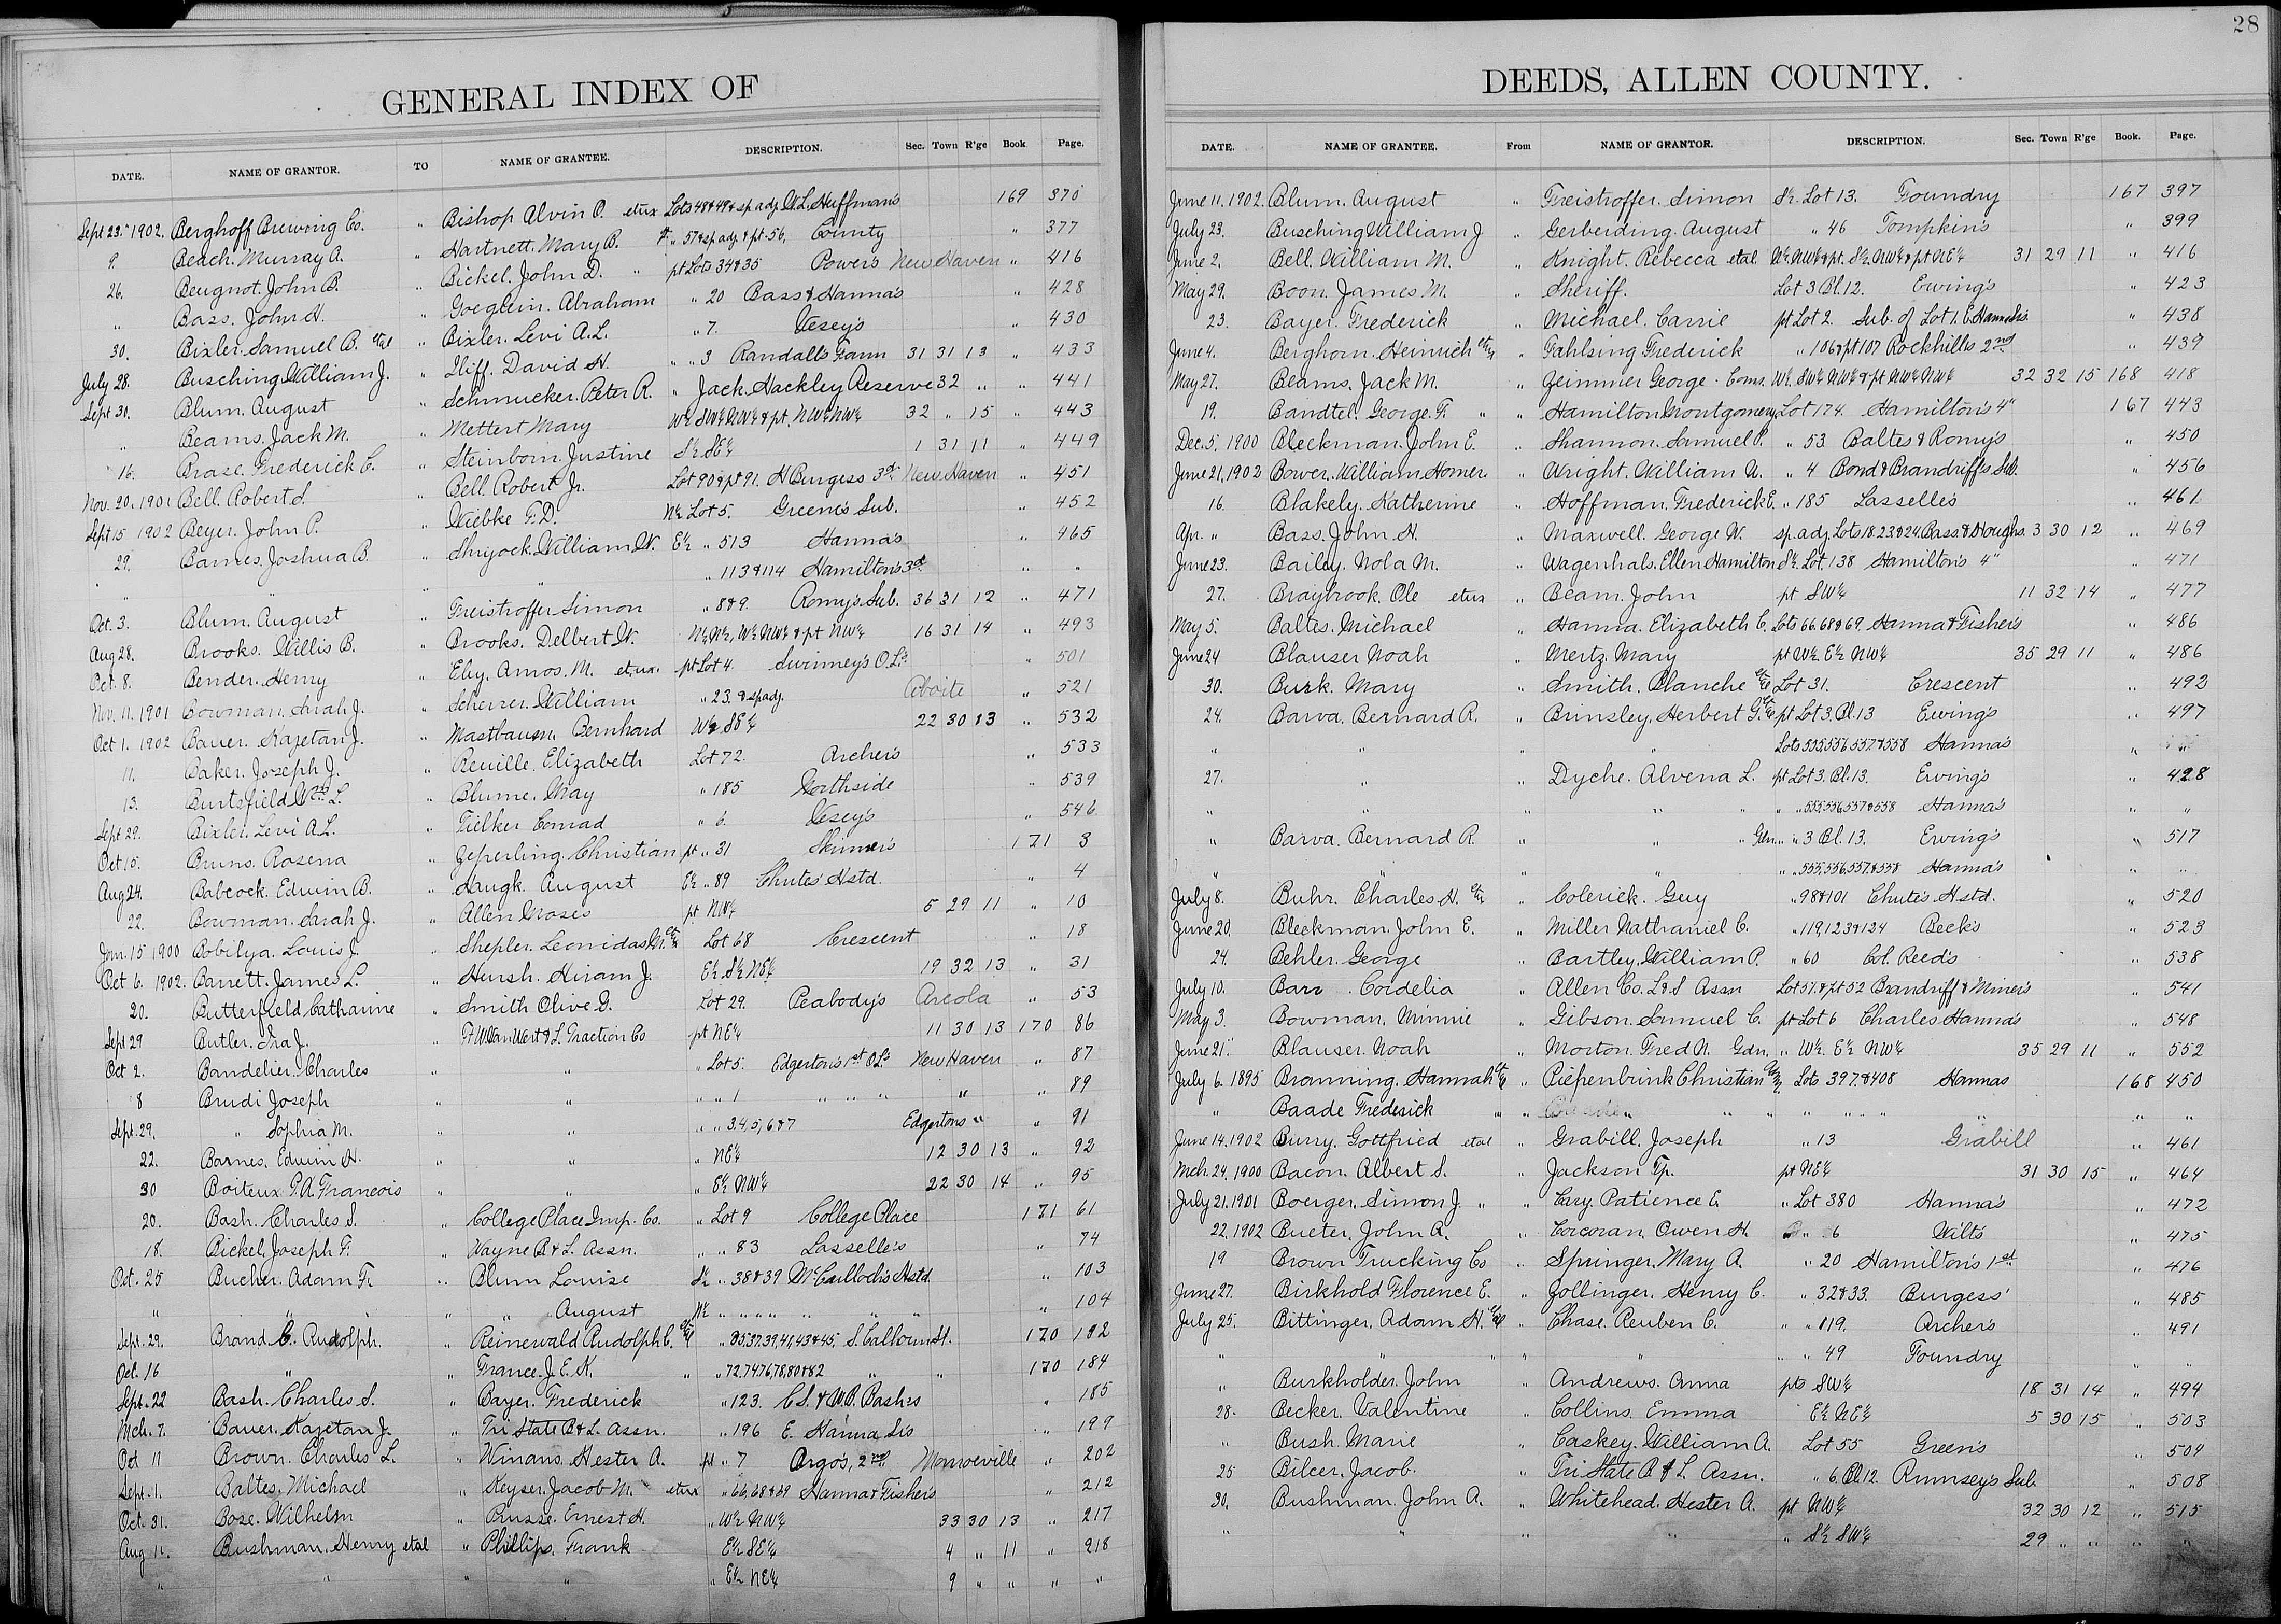 28
GENERAL INDEX OF
DATE. NAME OF GRANTOR. TO NAME OF GRANTEE. DESCRIPTION. Sec. Town R'ge Book Page.
Sept 23. 1902. Berghoff Brewing Co. " Bishop Alvin O. etux Lots 48 & 49 & sp adj. W.L. Huffman's 169 370
9. Beach. Murray A. " Hartnett. Mary B. " 57 & sp adj. & pt. 56, County " 377
26. Beugnot. John B. " Bickel. John D. " pt Lots 34 & 35 Powers New Haven " 416
" Bass. John H. " Goeglein. Abraham " 20 Bass & Hanna's " 428
30. Bixler. Samuel B. etal " Bixler. Levi A.L. " 7. Vesey's " 430
July 28. Busching William J. " Iliff. David H. " " 3 Randall's Farm 31 31 13 " 433
Sept 30. Blum. August " Schmucker. Peter R. " Jack. Hackley Reserve 32 " " 441
" Beams. Jack M. " Mettert Mary W½ SW¼ NW¼ & pt. NW¼ NW¼ 32 " 15 " 443
16. Brase. Frederick C. " Steinborn. Justine S½ SE¼ 1 31 11 " 449
Nov. 20. 1901 Bell. Robert S. " Bell. Robert Jr. Lot 90 & pt 91. H Burgess 3rd New Haven " 451
Sept 15 1902 Beyer. John P. " Wiebke F.D. N½ Lot 5. Greene's Sub. " 452
29. Barnes. Joshua B. " Shryock. William W. E½ " 513 Hanna's " 465
" " " " " 113 & 114 Hamilton's 3rd " "
Oct. 3. Blum. August " Freistroffer Simon " 8 & 9. Romy's Sub. 36 31 12 " 471
Aug 28. Brooks. Willis B. " Brooks. Delbert W. N½ N½, W½ NW¼ & pt NW¼ 16 31 14 " 493
Oct. 8. Bender. Henry " Eby. Amos. M. etux. pt Lot 4. Swinney's O.Ls. " 501
Nov. 11. 1901 Bowman. Sarah J. " Scherrer. William " 23. & sp adj. Aboite " 521
Oct 1. 1902 Bauer. Kajetan J. " Mastbaum. Bernhard W½ SE¼ 22 30 13 " 532
11. Baker. Joseph J. " Reuille. Elizabeth Lot 72. Archer's " 533
13. Burtsfield Wm. L. " Blume. May " 185 Northside " 539
Sept 29. Bixler. Levi A.L. " Tielker Conrad " 6. Vesey's " 546
Oct 15. Bruns. Rosena " Zeperling. Christian pt " 31 Skinner's 171 3
Aug 24. Babcock. Edwin B. " Haugk. August E½ " 89 Chute's Hstd. " 4
22. Bowman. Sarah J. " Allen Moses pt NW¼ 5 29 11 " 10
Jan. 15 1900 Bobilya. Louis J. " Shepler. Leonidas M. Lot 68 Crescent " 18
Oct 6. 1902. Barrett. James L. " Hursh. Hiram J. E½ S½ NE¼ 19 32 13 " 31
20. Butterfield Catharine " Smith Olive G. Lot 29. Peabody's Arcola " 53
Sept 29 Butler. Ira J. " Ft W. Van Wert & L. Traction Co pt NE¼ 11 30 13 170 86
Oct 2. Bandelier. Charles " " " Lot 5. Edgerton's 1st O.Ls New Haven " 87
8 Brudi Joseph " " " " 1 " " " " " 89
Sept. 29. " Sophia M. " " " " 3,4,5,6 & 7 Edgertons " " 91
22. Barnes. Edwin H. " " " NE¼ 12 30 13 " 92
30 Boiteux P.A. Francois " " " E½ NW¼ 22 30 14 " 95
20. Bash. Charles S. " College Place Imp. Co. " Lot 9 College Place 171 61
18. Bickel. Joseph F. " Wayne B & L. Assn. " " 83 Lasselle's " 74
Oct. 25 Bucher. Adam F. " Blum Louise S½ " 38 & 39 McCulloch's Hstd. " 103
" " " " August N½ " " " " " " " 104
Sept. 29. Brand. C. Rudolph. " Reinewald Rudolph C. " 35,37,39,41,43 & 45, S. Calhoun St. 170 182
Oct. 16 " " France. J.E.K. " " 72,74,76,78,80 & 82 " " 170 184
Sept. 22 Bash. Charles S. " Bayer. Frederick " 123. C.S. & W.B. Bash's " 185
Mch. 7. Bauer. Kajetan J. " Tri State B & L. Assn. " 196 E. Hanna Sis " 199
Oct 11 Brown. Charles L. " Winans. Hester A. pt " 7 Argo's, 2nd Monroeville " 202
Sept. 1. Baltes. Michael " Keyser. Jacob M. etux " 66,68 & 69 Hanna & Fisher's " 212
Oct. 31. Bose. Wilhelm " Busse. Ernest H. " W½ NW¼ 33 30 13 " 217
Aug 11. Bushman. Henry etal " Phillips. Frank E½ SE¼ 4 " 11 " 218
" " " " " E½ NE¼ 9 " " " "
DEEDS, ALLEN COUNTY.
DATE. NAME OF GRANTEE. From NAME OF GRANTOR. DESCRIPTION. Sec. Town R'ge Book. Page.
June 11. 1902. Blum. August " Freistroffer. Simon S½ Lot 13. Foundry 167 397
July 23. Busching William J " Gerberding. August " 46 Tompkins " 399
June 2. Bell. William M. " Knight. Rebecca etal N½ NW¼ & pt. S½ NW¼ & pt NE¼ 31 29 11 " 416
May 29. Boon. James M. " Sheriff. Lot 3 Bl. 12. Ewing's " 423
23. Bayer. Frederick " Michael. Carrie pt Lot 2. Sub. of Lot 1. E. Hanna Sis. " 438
June 4. Berghorn. Heinrich " Fahlsing Frederick " 106 & pt 107 Rockhills 2nd " 439
May 27. Beams. Jack M. " Zeimmer George. Coms. W½ SW¼ NW¼ & pt NW¼ NW¼ 32 32 15 168 418
19. Bandtel. George. F. " " Hamilton Montgomery Lot 174. Hamilton's 4" 167 443
Dec. 5. 1900 Bleckman. John E. " Shannon. Samuel P. " 53 Baltes & Romy's " 450
June 21. 1902 Bower. William Homer. " Wright. William N. " 4 Bond & Brandriff's Sub. " 456
16. Blakely. Katherine " Hoffman. Frederick E. " 185 Lasselle's " 461
Apr. " Bass. John H. " Maxwell. George W. sp. adj. Lots 18.23 & 24. Bass & Houghs. 3 30 12 " 469
June 23. Bailey. Nola M. " Wagenhals. Ellen Hamilton S½ Lot. 138 Hamilton's 4" " 471
27. Braybrook. Ole etux " Beam. John pt SW¼ 11 32 14 " 477
May 5. Baltes. Michael " Hanna. Elizabeth C. Lots 66.68 & 69. Hanna & Fisher's " 486
June 24 Blauser Noah " Mertz. Mary pt W½ E½ NW¼ 35 29 11 " 486
30. Burk. Mary " Smith. Blanche Lot 31. Crescent " 492
24. Barva. Bernard R. " Brinsley. Herbert G. pt Lot 3. Bl. 13 Ewing's " 497
" " " " Lots 555,556,557 & 558 Hanna's "
27. " " Dyche. Alvena L. pt Lot 3. Bl. 13. Ewing's " 428
" " " " " " " 555,556,557 & 558 Hanna's " "
" Barva. Bernard R. " " " Gdn. " " 3 Bl. 13. Ewing's " 517
" " " " " " 555,556,557 & 558 Hanna's " "
July 8. Buhr. Charles H. " Colerick. Guy " 98 & 101 Chute's Hstd. " 520
June 20. Bleckman. John E. " Miller Nathaniel C. " 119,123 & 124 Beck's " 523
24. Behler. George " Bartley. William P. " 60 Col. Reed's " 538
July 10. Barr. Cordelia " Allen Co. L & S Assn Lot 51. & pt 52 Brandriff & Miner's " 541
May 3. Bowman. Minnie " Gibson. Samuel C. pt Lot 6 Charles Hanna's " 548
June 21. Blauser. Noah " Morton. Fred N. Gdn. " W½ E½ NW¼ 35 29 11 " 552
July 6. 1895 Branning. Hannah " Piepenbrink Christian Lots 397 & 408 Hannas 168 450
" Baade Frederick " " " " " " " " " "
June 14. 1902 Burry. Gottfried etal " Grabill. Joseph " 13 Grabill " 461
Mch. 24. 1900 Bacon. Albert S. " Jackson Tp. pt NE¼ 31 30 15 " 464
July 21. 1901 Boerger. Simon J. " " Cary. Patience E. " Lot 380 Hanna's " 472
22. 1902 Bueter. John A. " Corcoran. Owen H. " 6 Wilt's " 475
19 Brown Trucking Co " Springer. Mary A. " 20 Hamilton's 1st " 476
June 27. Birkhold Florence E. " Zollinger. Henry C. " 32 & 33. Burgess' " 485
July 25. Bittinger. Adam H. " Chase. Reuben C. " " 119. Archer's " 491
" " " " " " " 49 Foundry " "
" Burkholder. John " Andrews. Anna pts SW¼ 18 31 14 " 494
28. Becker. Valentine " Collins. Emma E½ NE¼ 5 30 15 " 503
" Bush. Marie " Caskey. William A. Lot 55 Green's " 504
25 Bilcer. Jacob. " Tri State B & L Assn. " 6. Bl. 12. Rumsey's Sub. " 508
30. Bushman. John A. " Whitehead. Hester A. pt NW¼ 32 30 12 " 515
" " " " " S½ SW¼ 29 " " " "